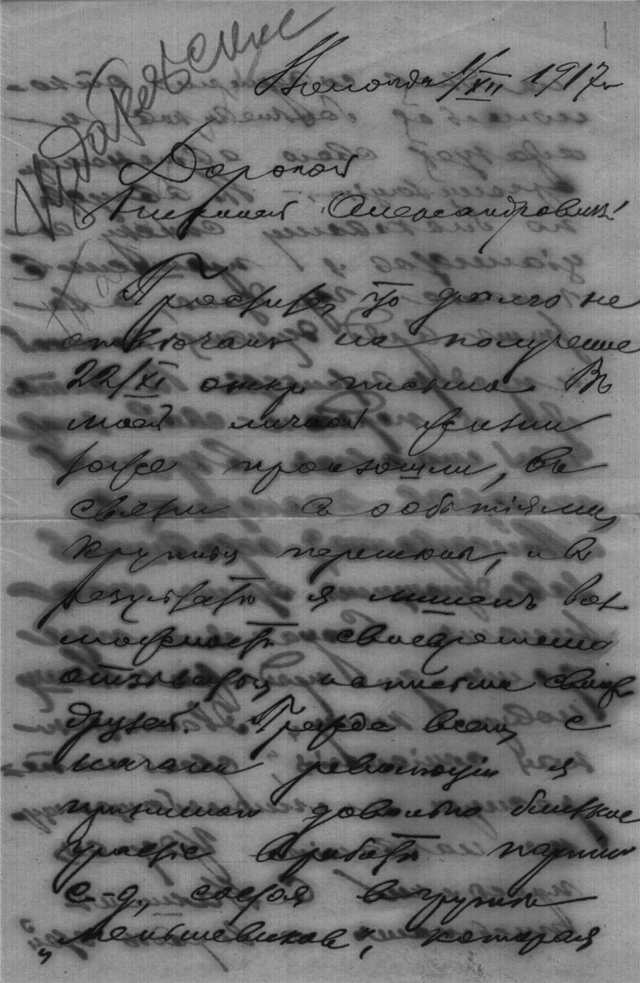 1
Вологда 1/XII 1917 г.
Дорогой
Александрович!
Простите, что долго не
отвечал на полученное
22/XI откр. письмо. Въ
моей личной жизни
тоже произошли, въ
связи съ событіями,
крупныя перемѣны, и въ
результатѣ я лишенъ воз
можности своевременно
отзываться на письма своихъ
друзей. Прежде всего, с
начала революціи я
принимаю довольно близкое
участіе въ работѣ партіи
с.-д., состоя в группѣ
„меньшевиков“, которая